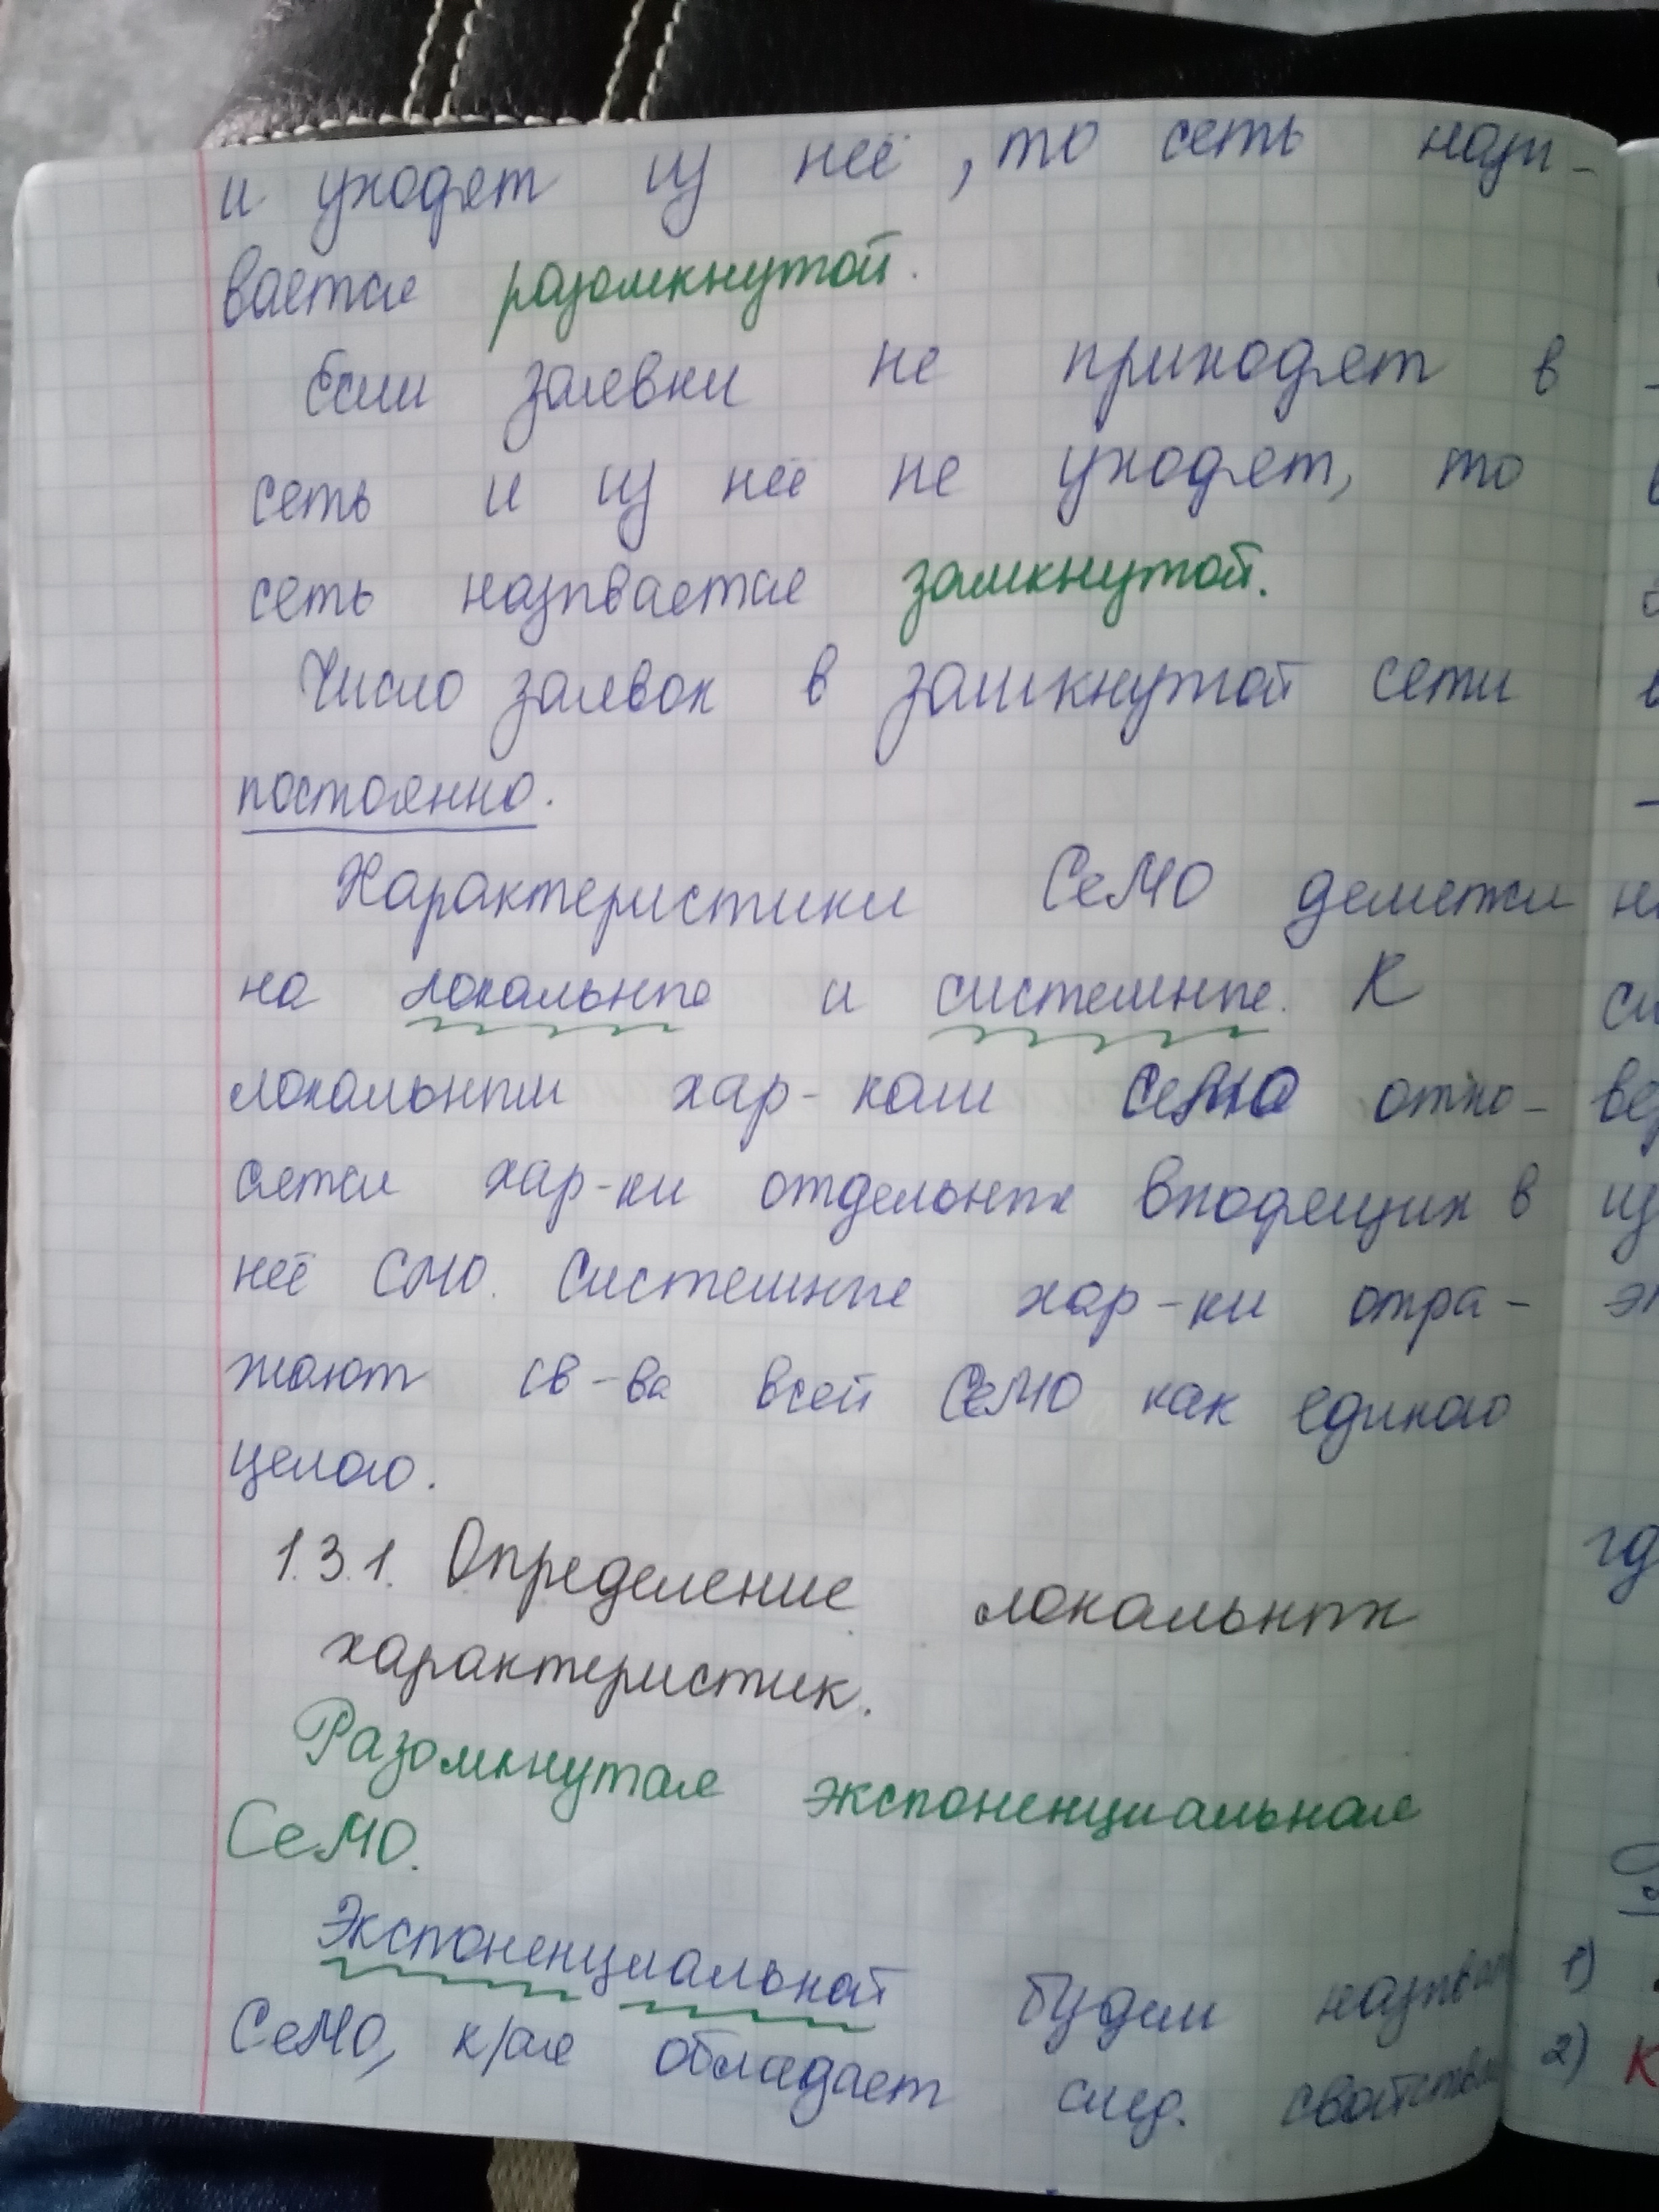 и уходят из неё, то сеть назы-
вается разомкнутой.
Если заявки не приходят в
сеть и из неё не уходят, то
сеть называется замкнутой.
Число заявок в замкнутой сети
постоянно.
Характеристики СеМО делятся
на локальные и системные. К
локальным хар-кам СеМО отно-
сятся хар-ки отдельных входящих в
неё СМО. Системные хар-ки отра-
жают св-ва всей СеМО как единого
целого.
1.3.1. Определение локальных
характеристик.
Разомкнутая экспоненциальная
СеМО.
Экспоненциальной будем называть
СеМО, к/рая обладает след. свойствами
1)
2)